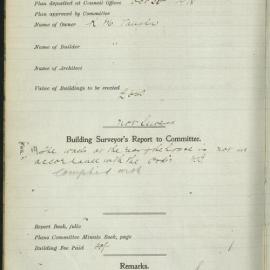 Plan deposited at Council Offices Oct 30 1918
Plan approved by Committee
Name of Owner R H
Name of Builder
Name of Architect
Value of Buildings to be erected
£
not
Building Surveyor's Report to Committee.
The walls at the rear of the house is not in
accordance with the
complied with
Report Book, folio
Plans Committee Minute Book, page
Building Fee Paid
Remarks.